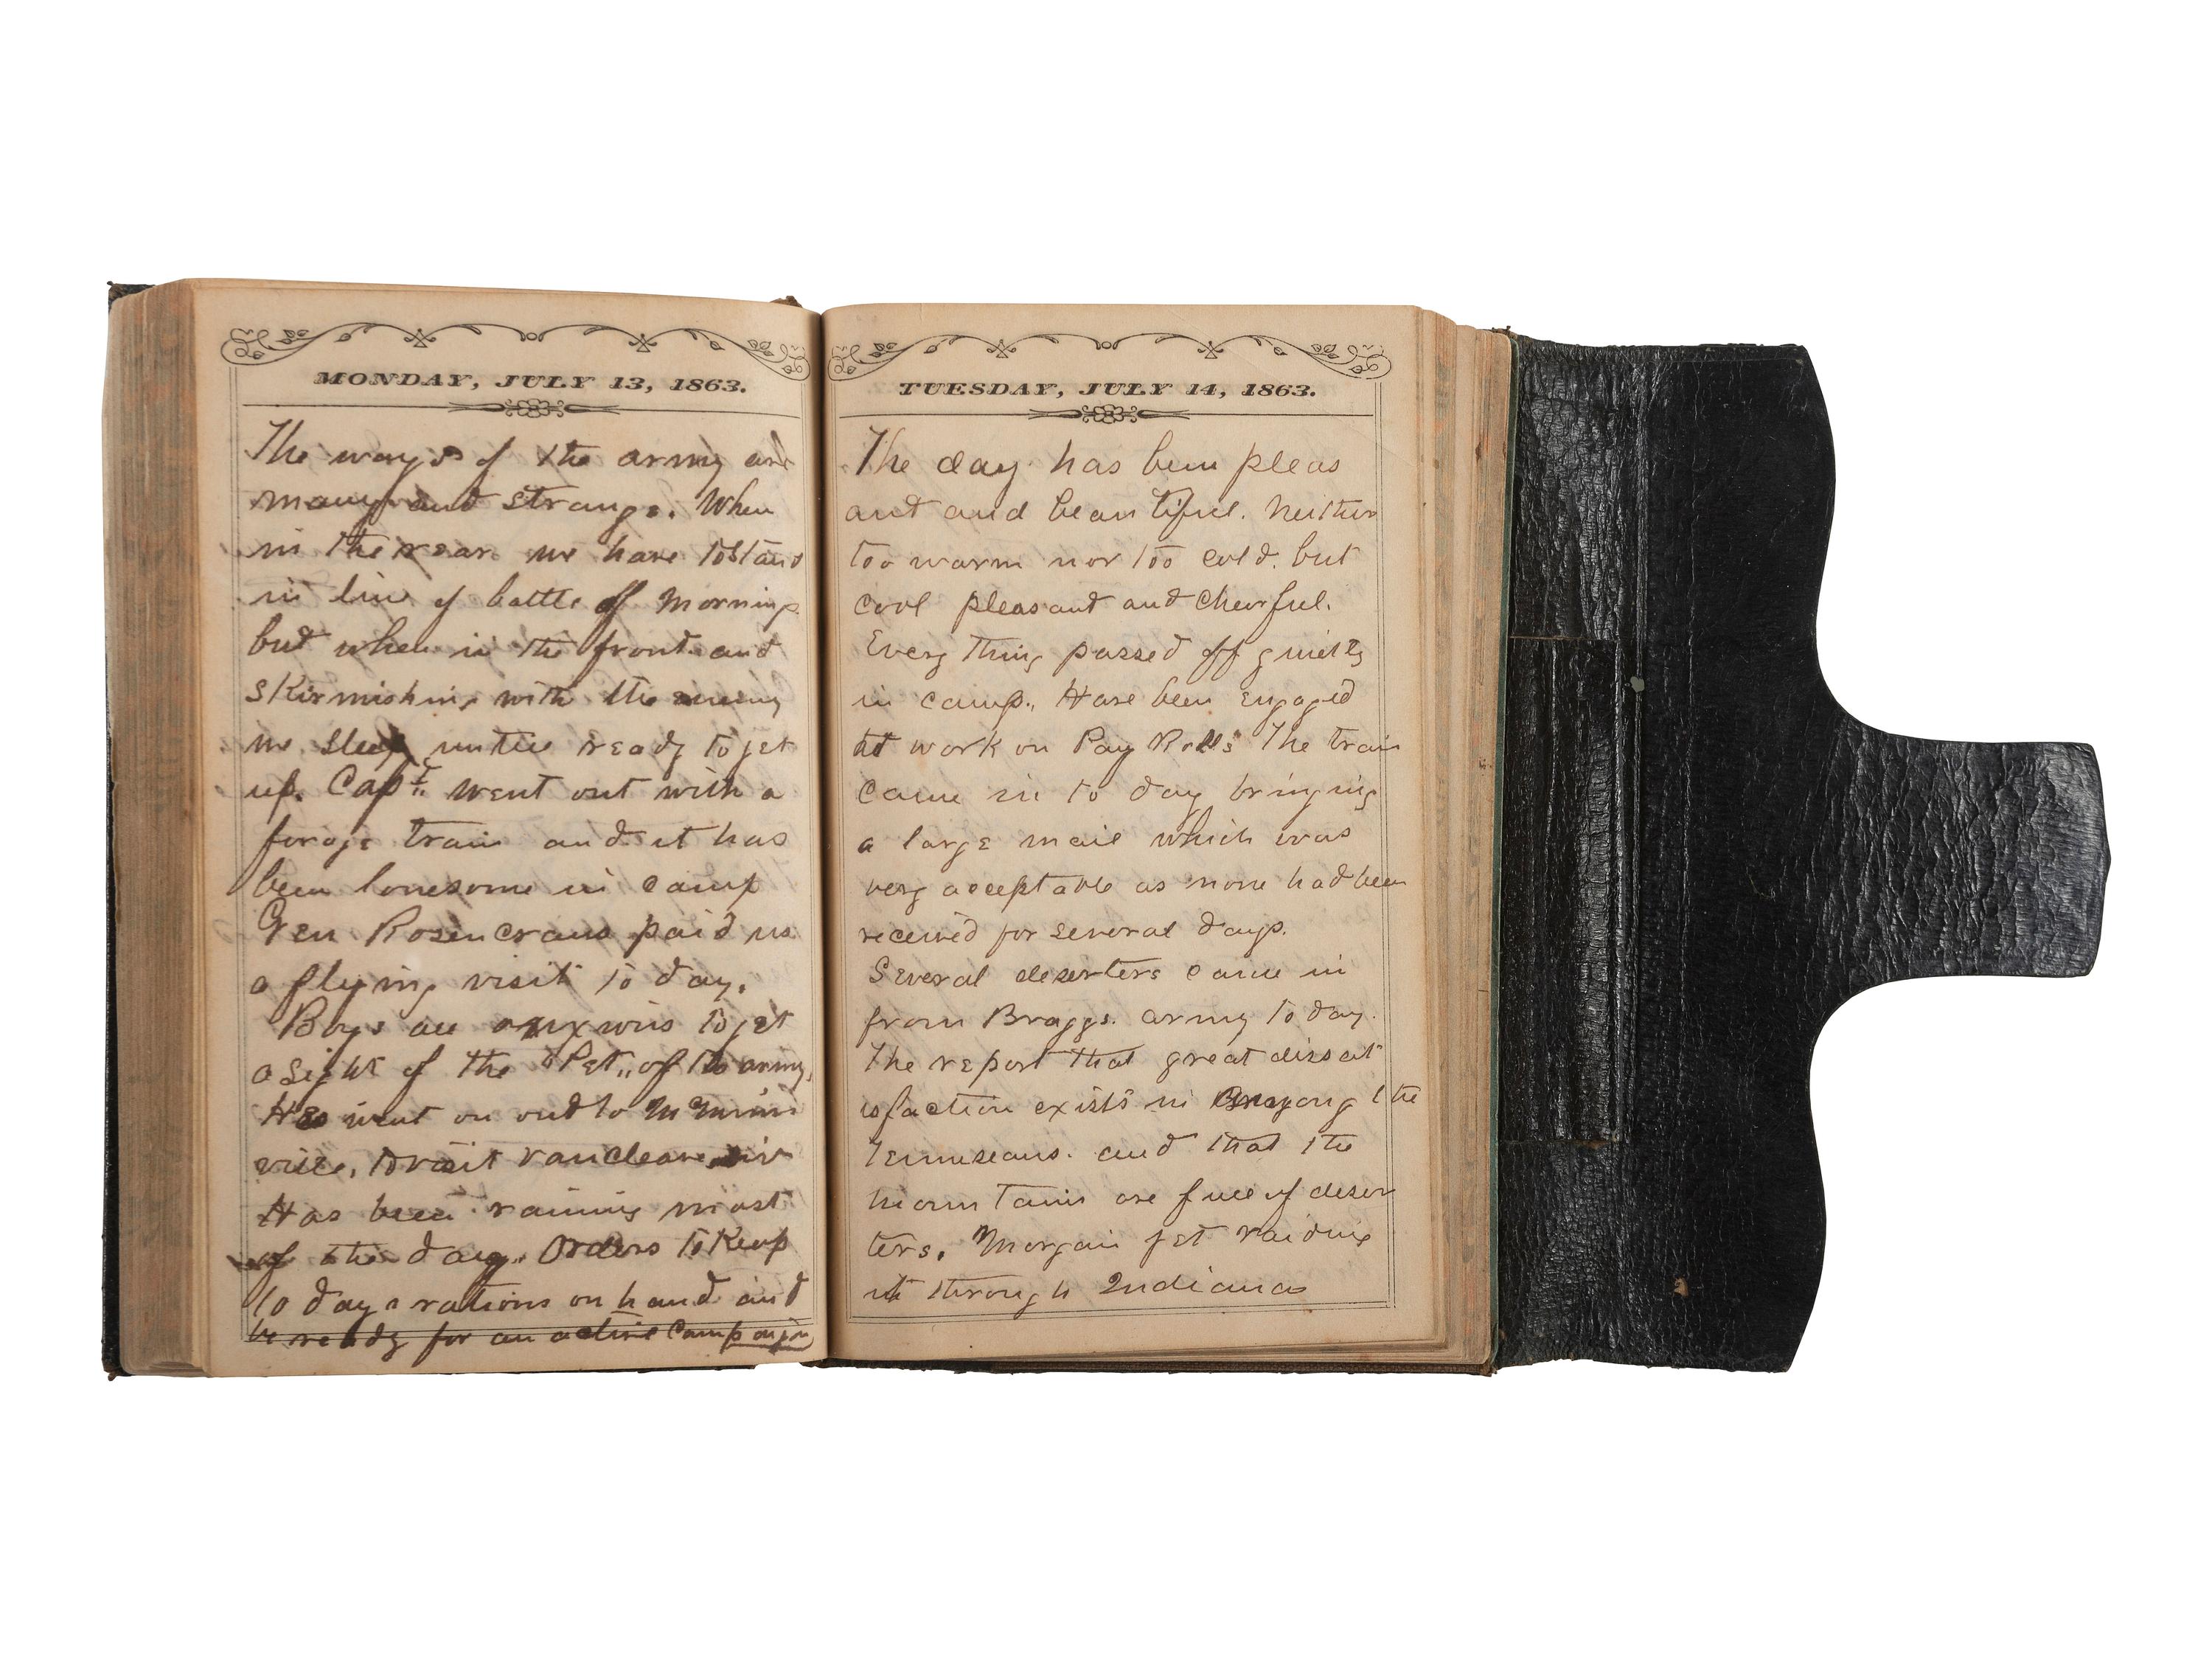 MONDAY, JULY 13, 1863.
The ways of the army are
many and strange. When
in the rear we have to stand
in line of battle of Mornings
but when in the front and
skirmishing with the enemy
we sleep untill ready to get
up. Capt. went out with a
forage train and it has
been lonesome in camp
Gen Rosencrans paid us
a flying visit to day.
Boys all anxious to get
a sight of the "Pet" of the army.
He went on out to McMinn
ville, to visit Vancleave Div
Has been raining most
of the day. Orders to Keep
10 days rations on hand and
be ready for an active campaign
TUESDAY, JULY 14, 1863.
The day has been pleas
ant and beautiful. Neither
too warm nor too cold. but
cool pleasant and cheerful.
Every thing passed off quietly
in camp. Have been engaged
at work on Pay Rolls The train
came in to day bringing
a large mail which was
very acceptable as none had been
received for several days.
Several deserters came in
from Braggs army to day.
The report that great dissat
isfaction exists in among the
Tennuseans. and that the
mountains are full of deser
ters. Morgan yet raiding
through Indiana